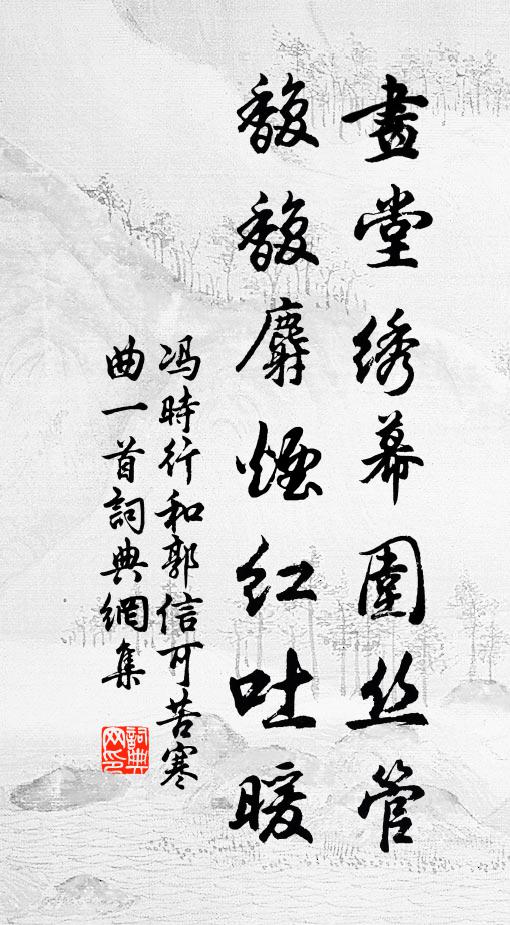 畫堂綉幕圍丝管
馥馥麝煙紅吐暖
冯時行和郭信可苦寒
曲一首詞典網集
詞典網印